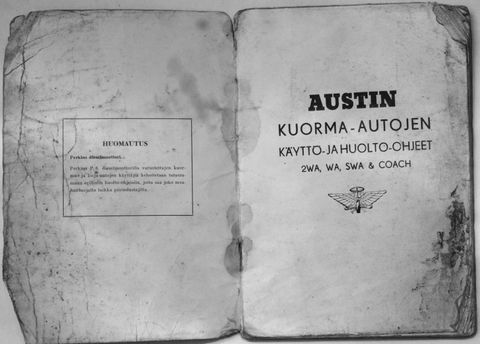 HUOMAUTUS
Perkins dieselmoottori...
Perkins P.6. dieselmoottorilla varustettujen kuor-
ma- ja linja-autojen käyttäjiä kehoitetaan tutustu-
maan erillisiin huolto-ohjeisiin, joita saa joko maa-
hantuojalta taikka piirimyyjiltä.
AUSTIN
KUORMA-AUTOJEN
KÄYTTÖ-JA HUOLTO-OHJEET
2WA, WA, SWA & COACH